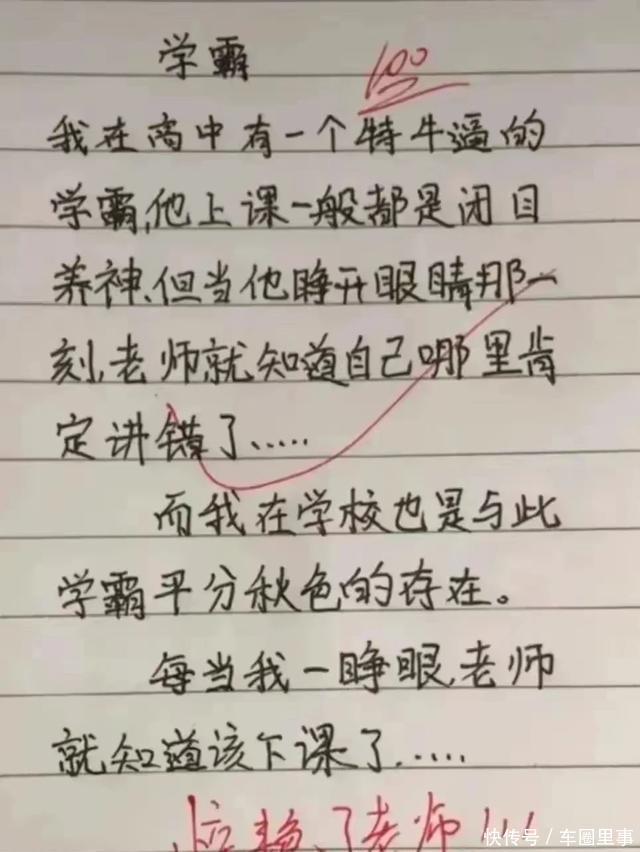 学霸
100
我在高中有一个特牛逼的
学霸,他上课一般都是闭目
养神、但当他睁开眼睛那一
刻,老师就知道自己哪里肯
定讲错了.....
而我在学校也是与此
学霸平分秋色的存在。
每当我一睁眼,老师
就知道该下课了.....
惊艳了老师!!!
快传号/车圈里事